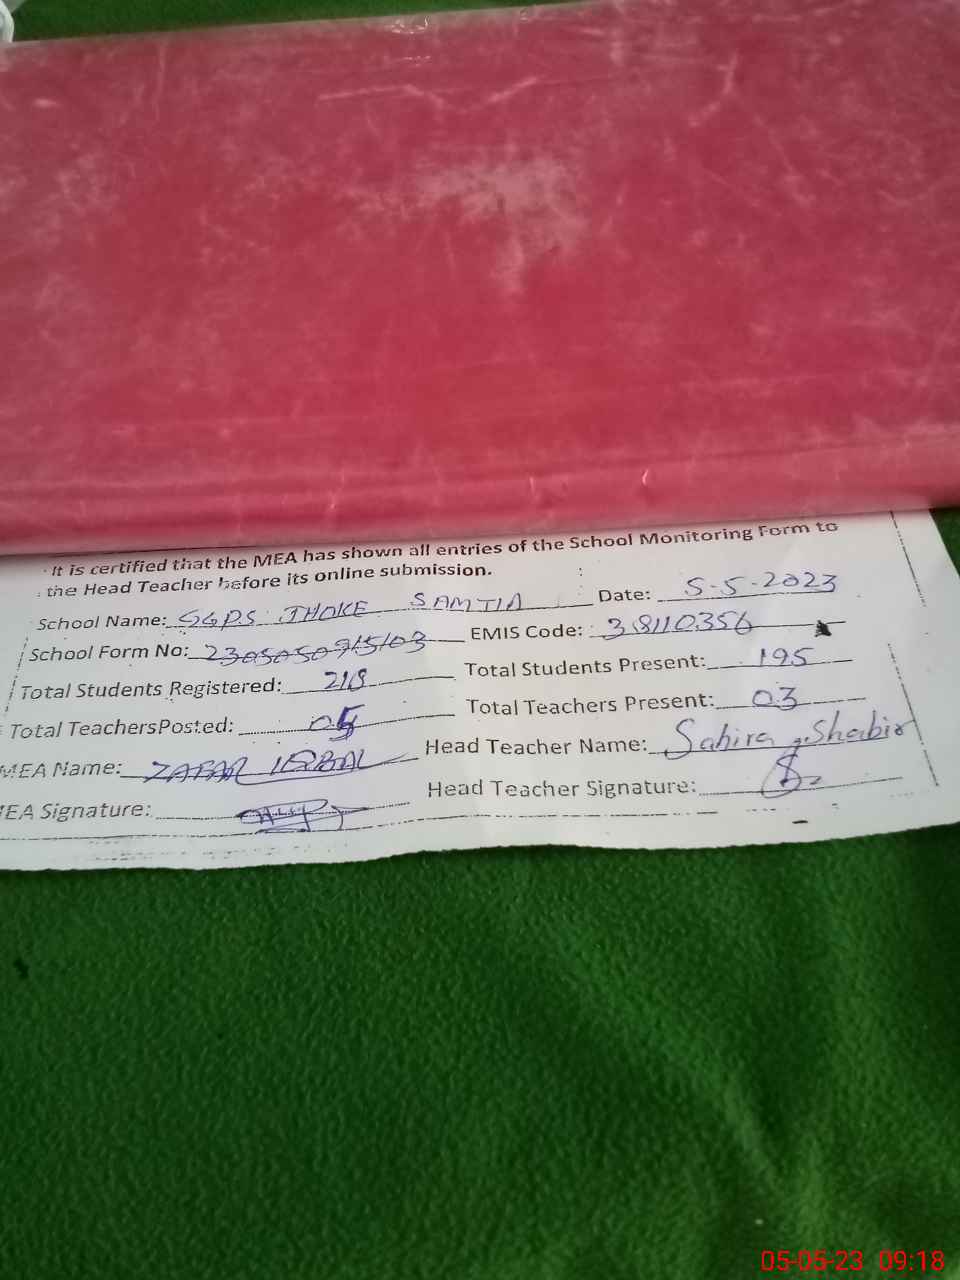 It is certified that the MEA has shown all entries of the School Monitoring Form to
the Head Teacher before its online submission.
School Name: SGPS JHOKE SAMTIA Date: 5-5-2023
School Form No: 2305050975103 EMIS Code: 38110356
Total Students Registered: 218 Total Students Present: 195
Total TeachersPosted: 05 Total Teachers Present: 03
MEA Name: ZAFAR IQBAL Head Teacher Name: Sahira Shabir
MEA Signature: Head Teacher Signature:
05-05-23 09:18